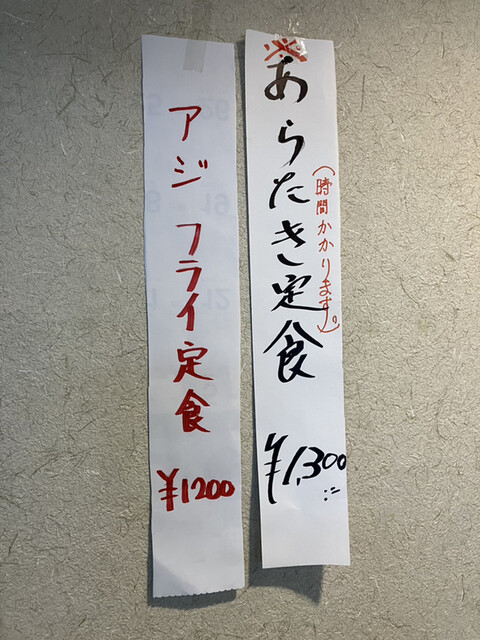 ※
あらたき定食
(時間かかります。)
¥1,300
アジフライ定食
¥1200